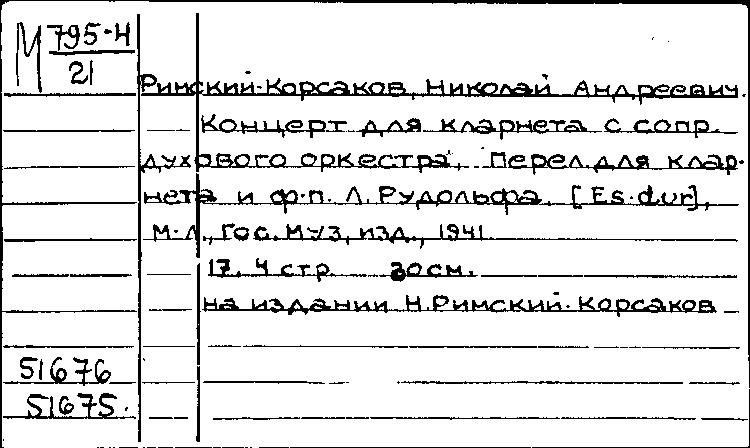 М 795-Н
21
Римский-Корсаков, Николай Андреевич.
Концерт для кларнета с сопр.
духового оркестра. Перел. для клар-
нета и ф-п. Л. Рудольфа. [Es-dur],
М-Л., Гос. муз. изд., 1941.
17, 4 стр 30 см.
на издании Н. Римский-Корсаков
51676
51675.